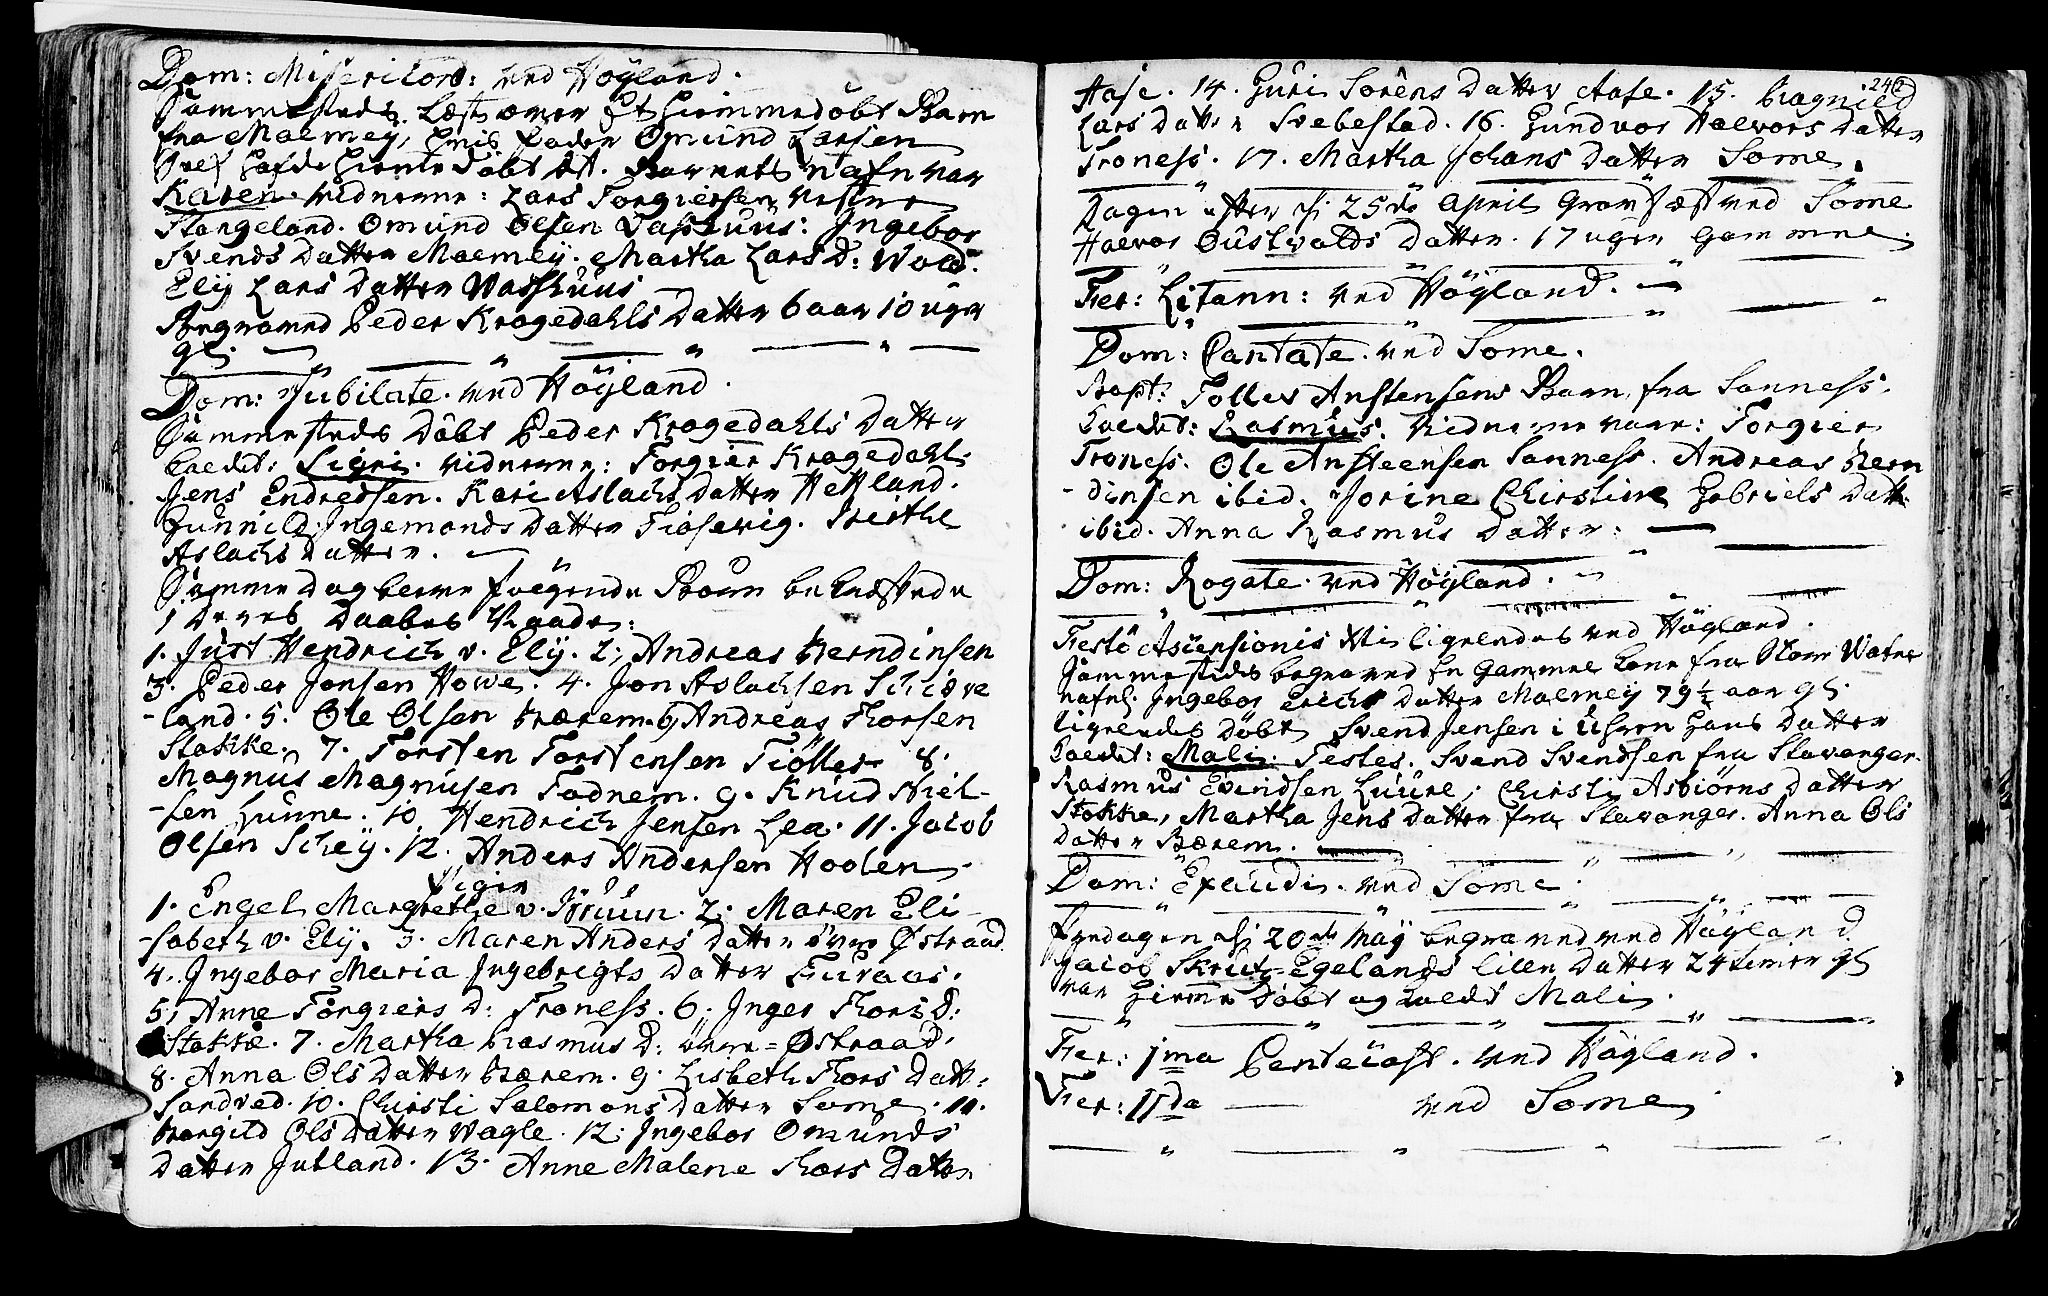 Dom: Misericord: ved Höÿland.
Sammesteds Læst over Et Hiemmedöbt Barn
fra Malmeÿ, hvis Fader Omund Larsen
Self hafde hiemme döbt det. Barnets nafn var
Karen. Vidnerne: Lars Torgiersen vestre
Stangeland. Omund Olsen Vashuus: Ingebor
Svends datter Malmeÿ. Martha Lars d: Wold.
Elÿ Lars datter Vashuus
Begraved Peder Kragedahls datter 6 aar 10 uger
gl.
Dom: Jubilate. ved Höÿland.
Sammesteds döbt Peder Kragedahls datter
kaldt: Sigri. vidnerne: Torgier Kragedahl
Jens Endresen. Kari Aslachs datter Hetland.
Gunnild Ingemonds datter Fiosevig. Birthe
Aslachs datter.
Samme dag bleve fölgende Börn bekræftede
i deres Daabes Naade:
1. Just Hendrich v. Elÿ. 2, Andreas Berndinsen
3. Peder Jonsen Howe. 4. Jon Aslachsen Schiæve
-land. 5. Ole Olsen Bærem. 6, Andreas Thorsen
Stokke. 7. Torsten Torstensen Tiölker 8.
Magnus Magnusen Fodnem. 9. Knud Niel-
-sen Lunne. 10. Hendrich Jensen Lea. 11. Jacob
Olsen Scheÿ. 12. Anders Andersen Hoolen
Piger
1. Engel Margrethe v. Bruun. 2. Maren Eli-
-sabeth v. Elÿ. 3. Maren Anders datter övre Østraad
4. Ingebor Maria Ingebrigts datter Furaas.
5, Anne Torgiers d: Troness. 6. Inger Thors d:
Stokke. 7. Martha Rasmus d: övre=Østraad.
8. Anna Ols datter Bærem. 9. Lisbeth Thors datt:
Sandved. 10. Christi Salomons datter Some. 11.
Borgild Ols datter Vagle. 12. Ingebor Omunds
datter Jutland. 13. Anne Malene Thors datter
242
Aase. 14. Guri Sörens datter Aase. 15. Ragnild
Lars datter Svebestad. 16. Gundvor Halvors datter
Troness. 17. Martha Johans datter Some.
Dagen efter di 25de April Grav fæst ved Some
Halvor Gustvalds datter. 17 uger gammel.
Fer: Litann: ved Höÿland.
Dom: Cantate. ved Some.
Bapt: Tolles Anstensens Barn fra Sanness.
kaldt: Rasmus. Vidnerne vare: Torgier
Troness. Ole Ansteensen Sanness. Andreas Bern
-dinsen ibid. Jorine Christine Gabriels datt:
ibid. Anna Rasmus datter:
Dom: Rogate. ved Höÿland.
Festo Ascensionis Xti ligeledes ved Höÿland.
Sammesteds begraved En gammel kone fra Store Watne
nafnl: Ingebor Erichs datter Malmeÿ 79½ aar gl.
ligeledes döbt Svend Jensen i Hans datter
kaldt: Mali. Testes. Svend Svendsen fra Stavanger.
Rasmus Evindsen Luure, Christi Asbiörns datter
Stokke, Martha Jens datter fra Stavanger. Anna Ols
datter Bærem.
Dom: Exaudi. ved Some.
Fredagen di 20de Maÿ begraved ved Höÿland
Jacob Skrut-Egelands lille datter 24 timer gl
var hieme döbt og kaldt Mali.
Fer: 1ma Pentecost. ved Höÿland.
Fer: IIda ved Some